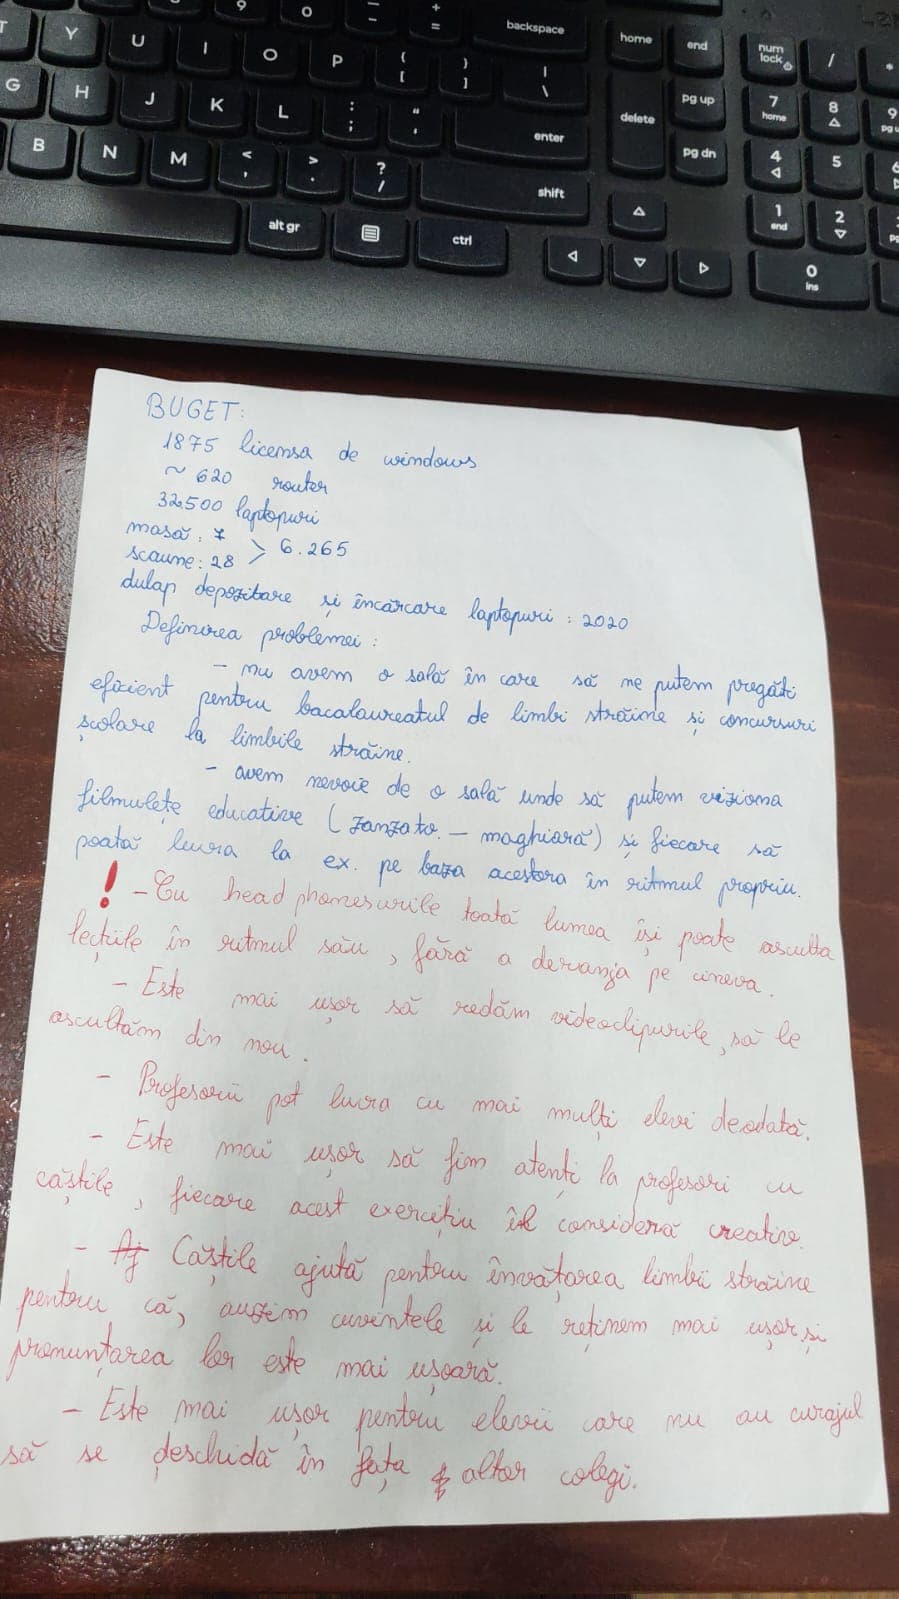 9 O - _ + = backspace home end num lock /  *
T Y U I O P { [ } ] | \ delete pg up 7 home 8 9 pg u
G H J K L : ; " ' enter pg dn 4 5 6
B N M < , > . ? / shift 1 end 2
alt gr ctrl 0 ins
BUGET:
1875 licensa de windows
~ 620 router
32.500 laptopuri
masă: 7
scaune: 28 > 6.265
dulap depozitare și încărcare laptopuri : 2020
Definirea problemei :
- nu avem o sală în care să ne putem pregăti
eficient pentru bacalaureatul de limbi străine și concursuri
școlare la limbile străine.
- avem nevoie de o sală unde să putem viziona
filmulețe educative ( - maghiară) și fiecare să
poată lucra la ex. pe baza acestora în ritmul propriu.
! - Cu headphonesurile toată lumea își poate asculta
lecțiile în ritmul său, fără a deranja pe cineva.
- Este mai ușor să redăm videoclipurile, să le
ascultăm din nou.
- Profesorii pot lucra cu mai mulți elevi deodată.
- Este mai ușor să fim atenți la profesori cu
căștile, fiecare acest exercițiu îl consideră creativ.
- Aj Căștile ajută pentru învățarea limbii străine
pentru că, auzim cuvintele și le reținem mai ușor și
pronunțarea lor este mai ușoară.
- Este mai ușor pentru elevii care nu au curajul
să se deschidă în fața altor colegi.